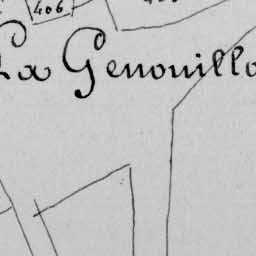 406
La Genouilla